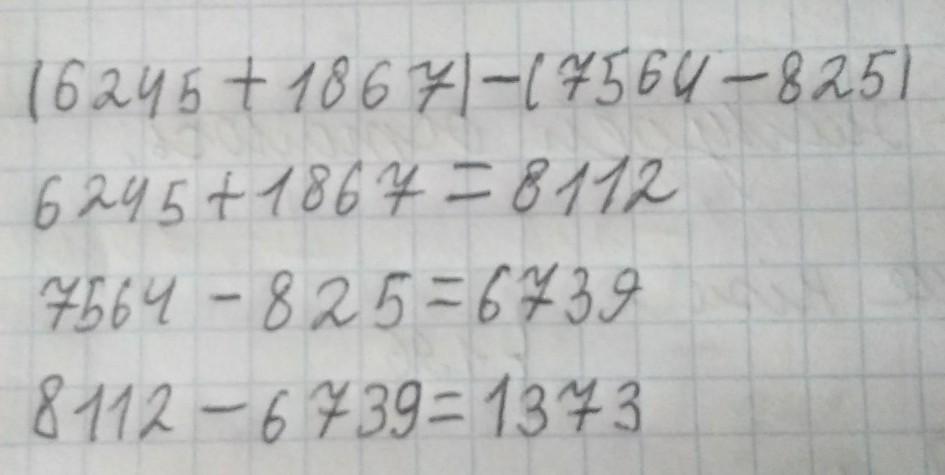 (6245 + 1867) - (7564 - 825)
6245 + 1867 = 8112
7564 - 825 = 6739
8112 - 6739 = 1373